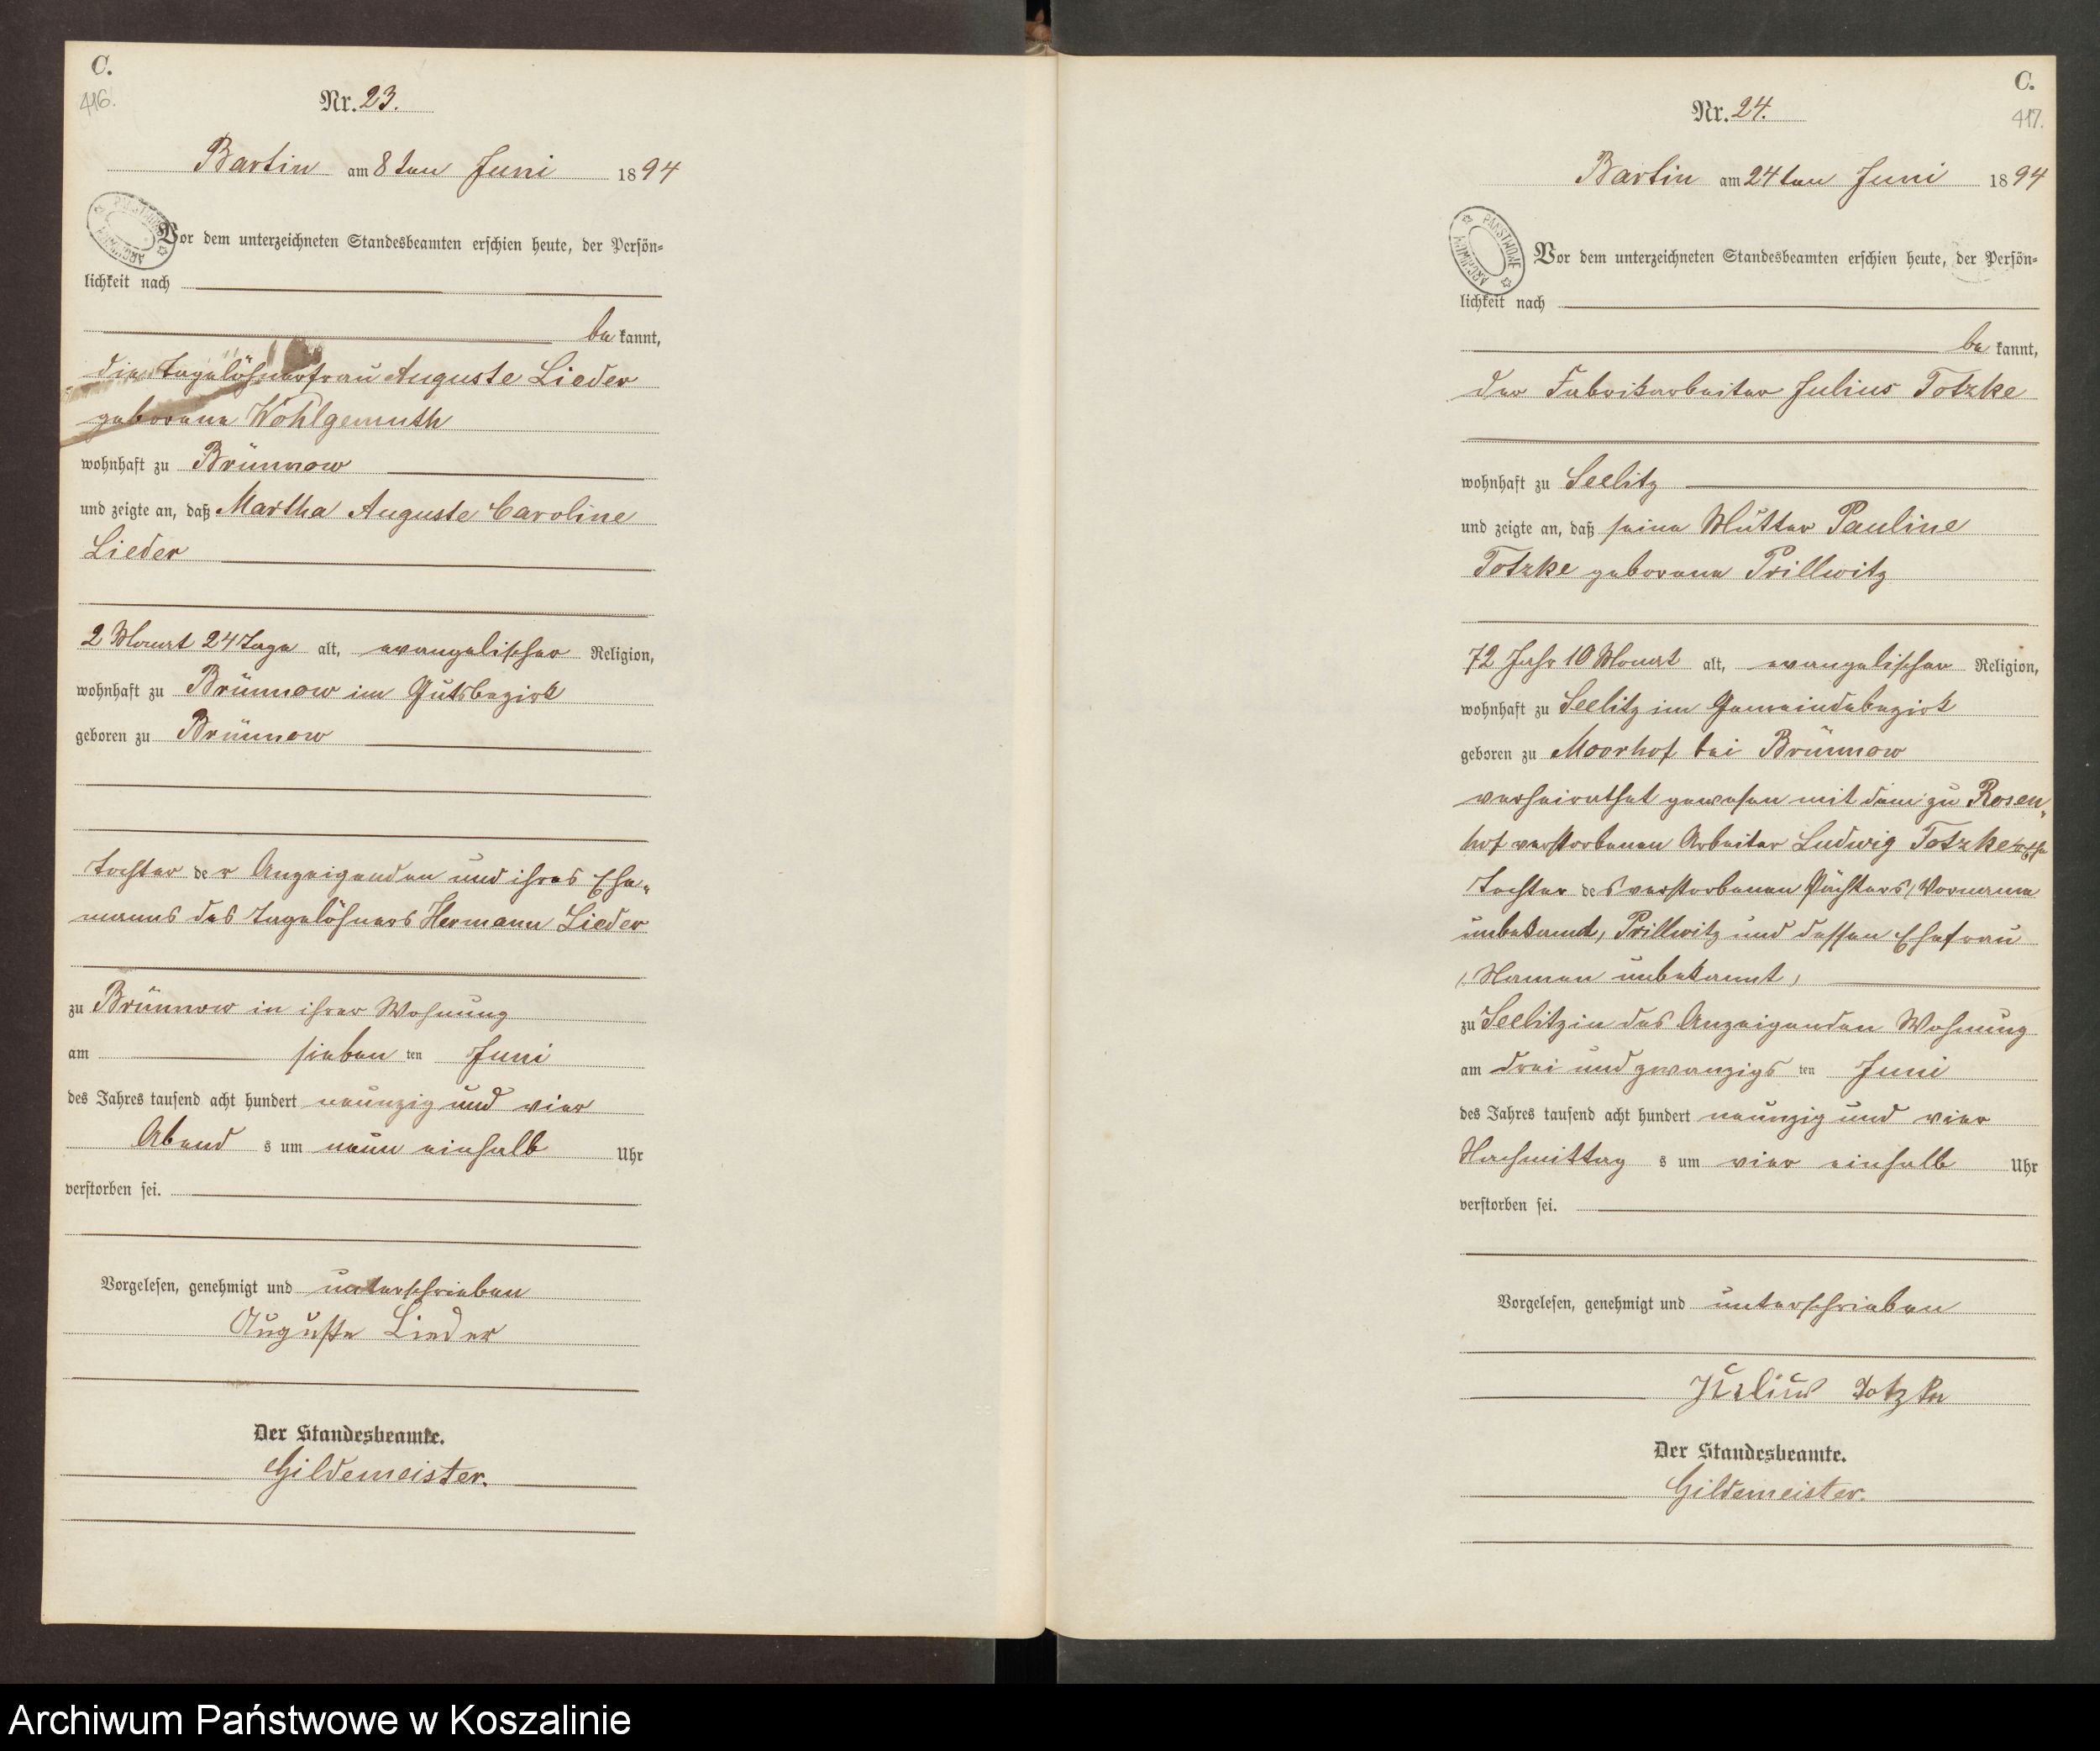 C.
416.
Nr. 23.
Bartin am 8ten Juni 1894
Vor dem unterzeichneten Standesbeamten erschien heute, der Persön=
lichkeit nach
bekannt,
die Tagelöhnerfrau Auguste Lieder
geborene Wohlgemuth
wohnhaft zu Brünnow
und zeigte an, daß Martha Auguste Caroline
Lieder
2 Monat 24 Tage alt, evangelischer Religion,
wohnhaft zu Brünnow im Gutsbezirk
geboren zu Brünnow
Tochter der Anzeigenden und ihres Ehe„
manns des Tagelöhners Hermann Lieder
zu Brünnow in ihrer Wohnung
am sieben ten Juni
des Jahres tausend acht hundert neunzig und vier
Abend s um neun einhalb Uhr
verstorben sei.
Vorgelesen, genehmigt und unterschrieben
Auguste Lieder
Der Standesbeamte.
Gildemeister.
C.
417.
Nr. 24.
Bartin am 24ten Juni 1894
PAŃSTWOWE ARCHIWUM
Vor dem unterzeichneten Standesbeamten erschien heute, der Persön=
lichkeit nach
bekannt,
der Fabrikarbeiter Julius Totzke
wohnhaft zu Seelitz
und zeigte an, daß seine Mutter Pauline
Totzke geborene Prillwitz
72 Jahr 10 Monat alt, evangelischer Religion,
wohnhaft zu Seelitz im Gemeindebezirk
geboren zu Moorhof bei Brünnow
verheirathet gewesen mit dem zu Rosen„
hof verstorbenen Arbeiter Ludwig Totzke
Tochter des verstorbenen Pächters, Vorname
unbekannt, Prillwitz und dessen Ehefrau
(Namen unbekannt)
zu Seelitz in des Anzeigenden Wohnung
am drei und zwanzigs ten Juni
des Jahres tausend acht hundert neunzig und vier
Nachmittag s um vier einhalb Uhr
verstorben sei.
Vorgelesen, genehmigt und unterschrieben
Julius Totzke
Der Standesbeamte.
Gildemeister.
Archiwum Państwowe w Koszalinie